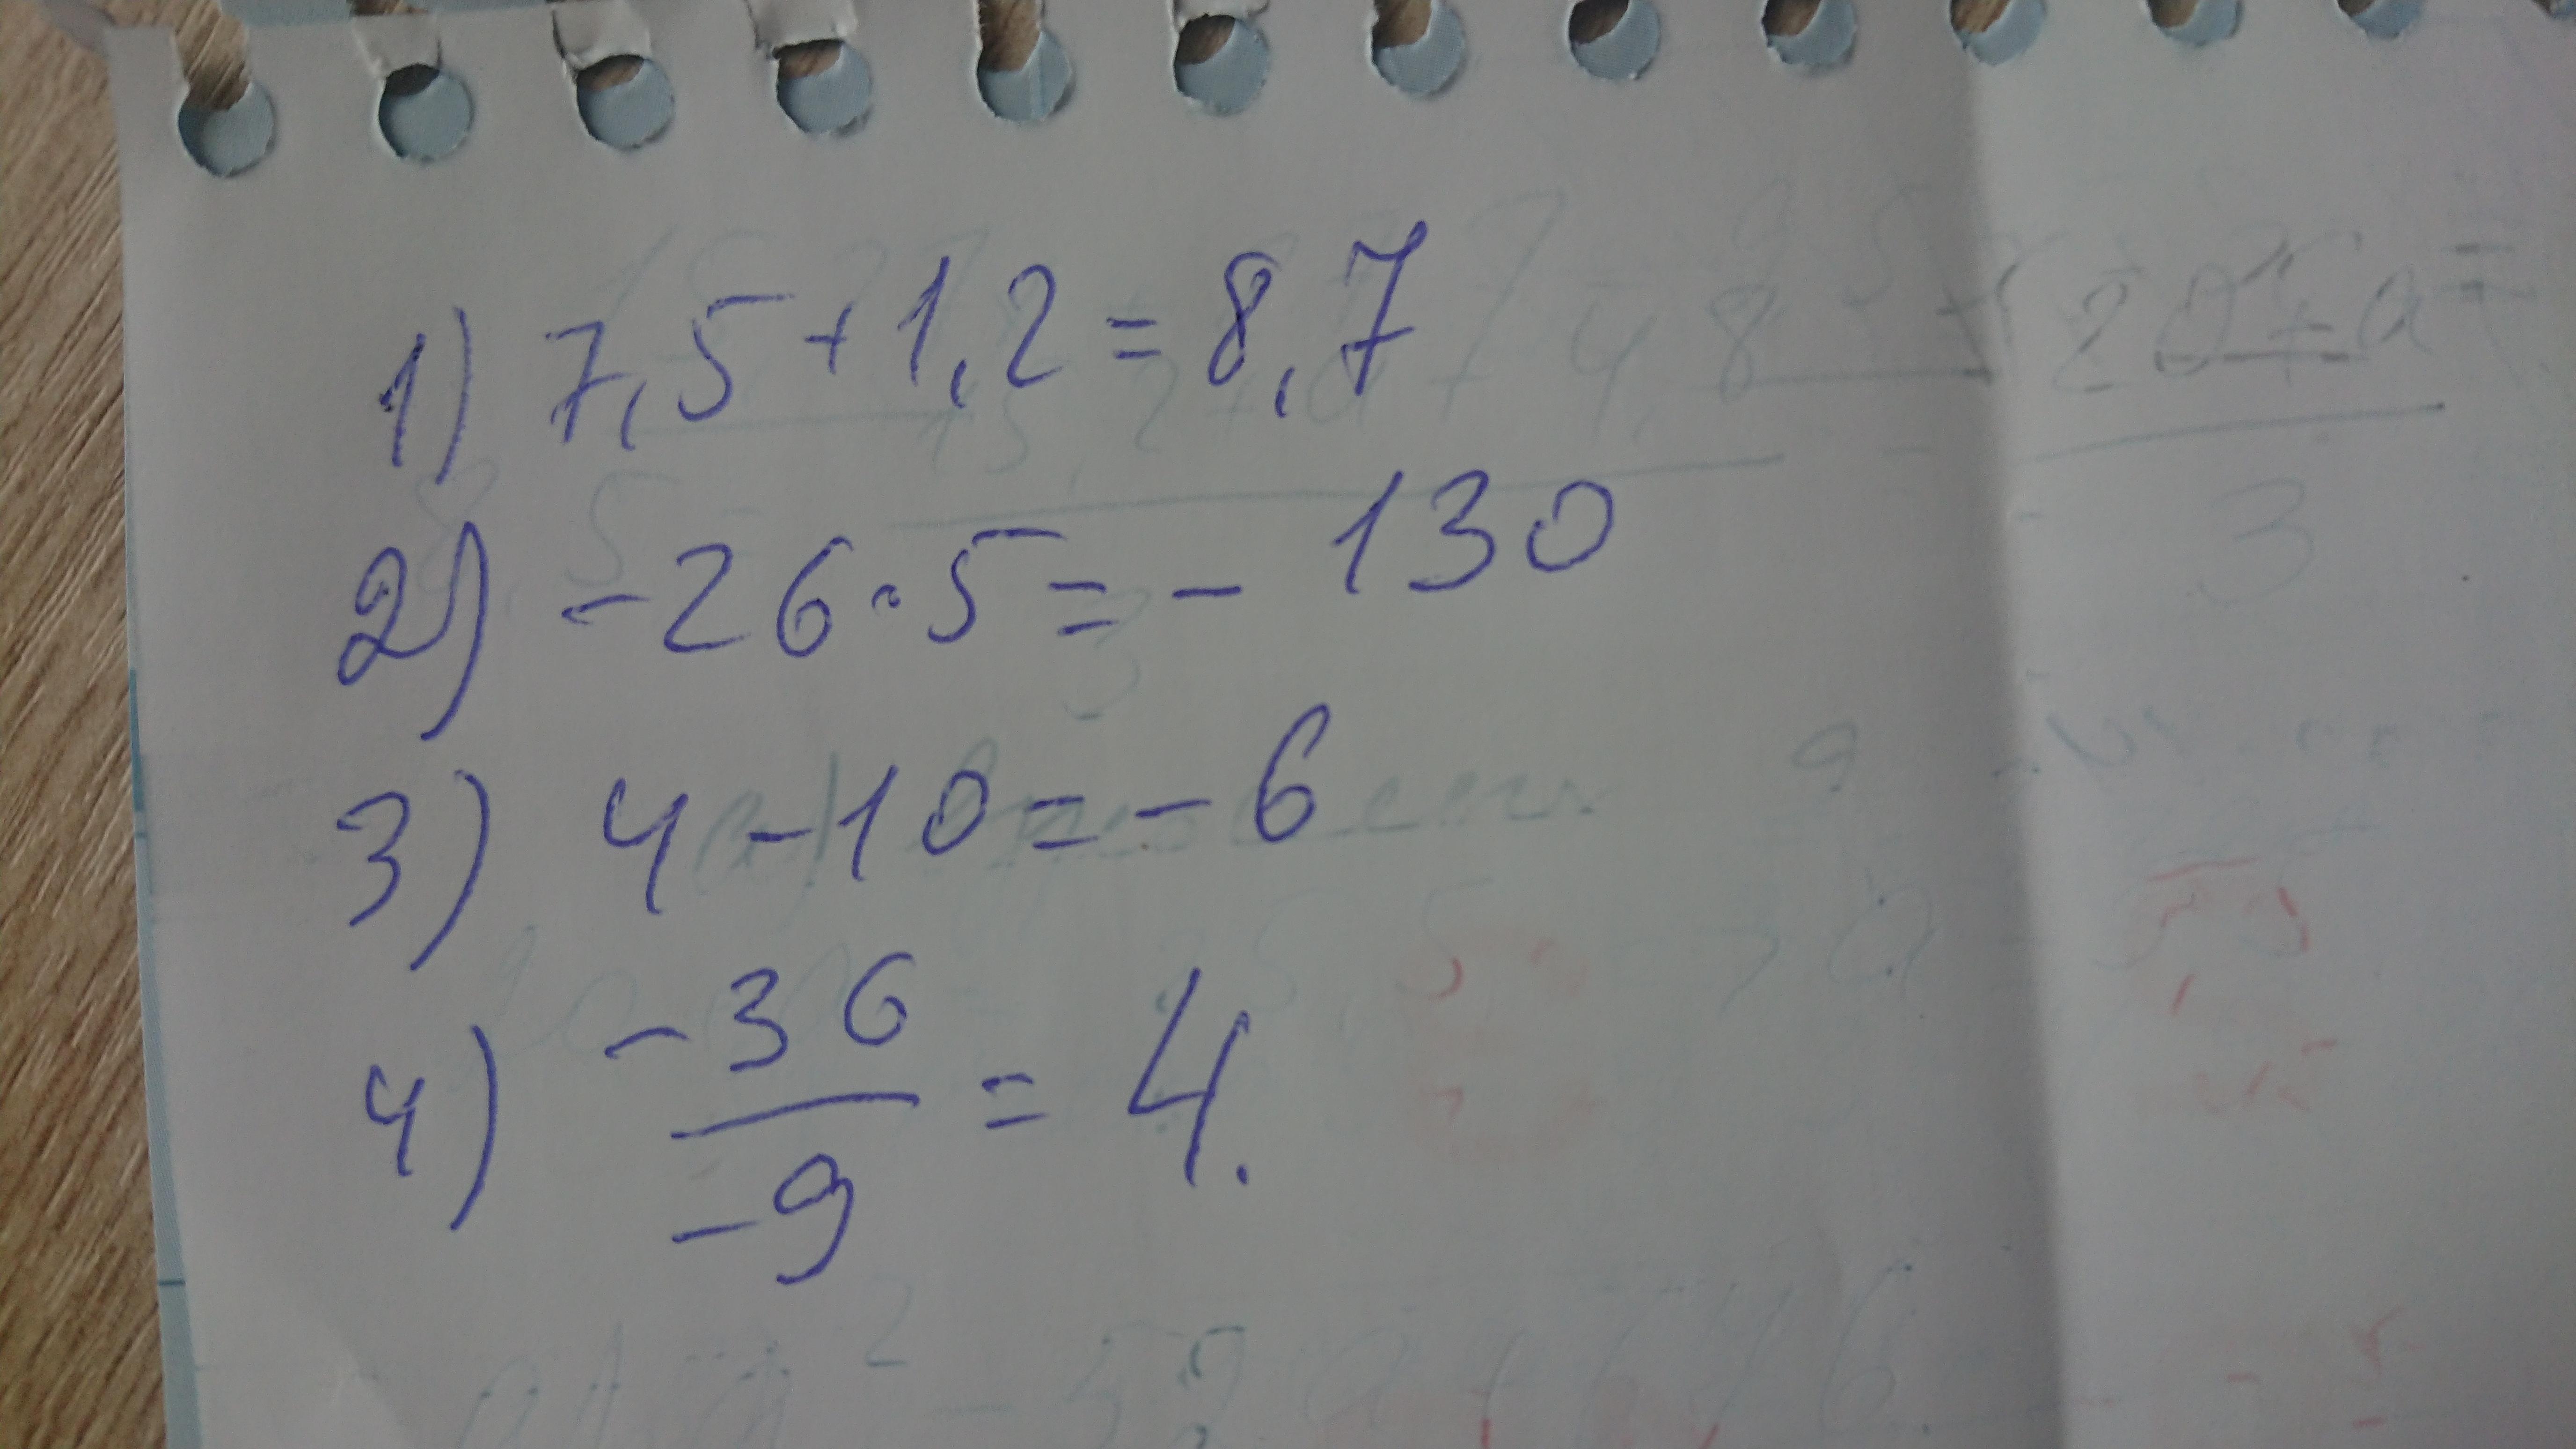 1) 7,5 + 1,2 = 8,7
2) - 26 · 5 = - 130
3) 4 - 10 = - 6
4) -36/-9 = 4.